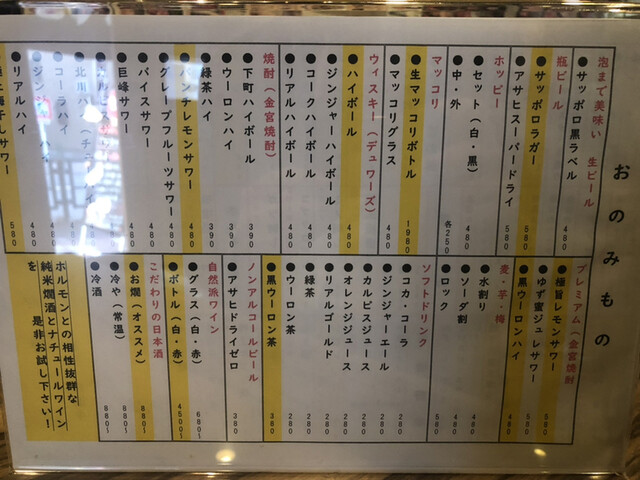 おのみもの
泡まで美味い 生ビール
●サッポロ黒ラベル 480
瓶ビール
●サッポロラガー 580
●アサヒスーパードライ 580
ホッピー
●セット(白・黒) 480
●中・外 各250
マッコリ
●生マッコリボトル 1980
●マッコリグラス 480
ウィスキー(デュワーズ)
●ハイボール 480
●ジンジャーハイボール 480
●コークハイボール 480
●リアルハイボール 480
焼酎(金宮焼酎)
●下町ハイボール 390
●ウーロンハイ 390
●緑茶ハイ 390
●パンチレモンサワー 480
●グレープフルーツサワー 480
●バイスサワー 480
●巨峰サワー 480
●コーラハイ 480
●リアルハイ 480
梅干しサワー 580
プレミアム(金宮焼酎)
●極旨レモンサワー 580
●ゆず蜜ジュレサワー 580
●黒ウーロンハイ 480
麦・芋・梅
●水割り 480
●ソーダ割 480
●ロック 580
ソフトドリンク
●コカ・コーラ 280
●ジンジャーエール 280
●カルピスジュース 280
●オレンジジュース 280
●リアルゴールド 280
●緑茶 280
●ウーロン茶 280
●黒ウーロン茶 380
ノンアルコールビール
●アサヒドライゼロ 380
自然派ワイン
●グラス(白・赤) 680〜
●ボトル(白・赤) 4500〜
こだわりの日本酒
●お燗(オススメ) 880〜
●冷や(常温) 880〜
●冷酒 880〜
ホルモンとの相性抜群な
純米燗酒とナチュールワイン
を
是非お試し下さい!